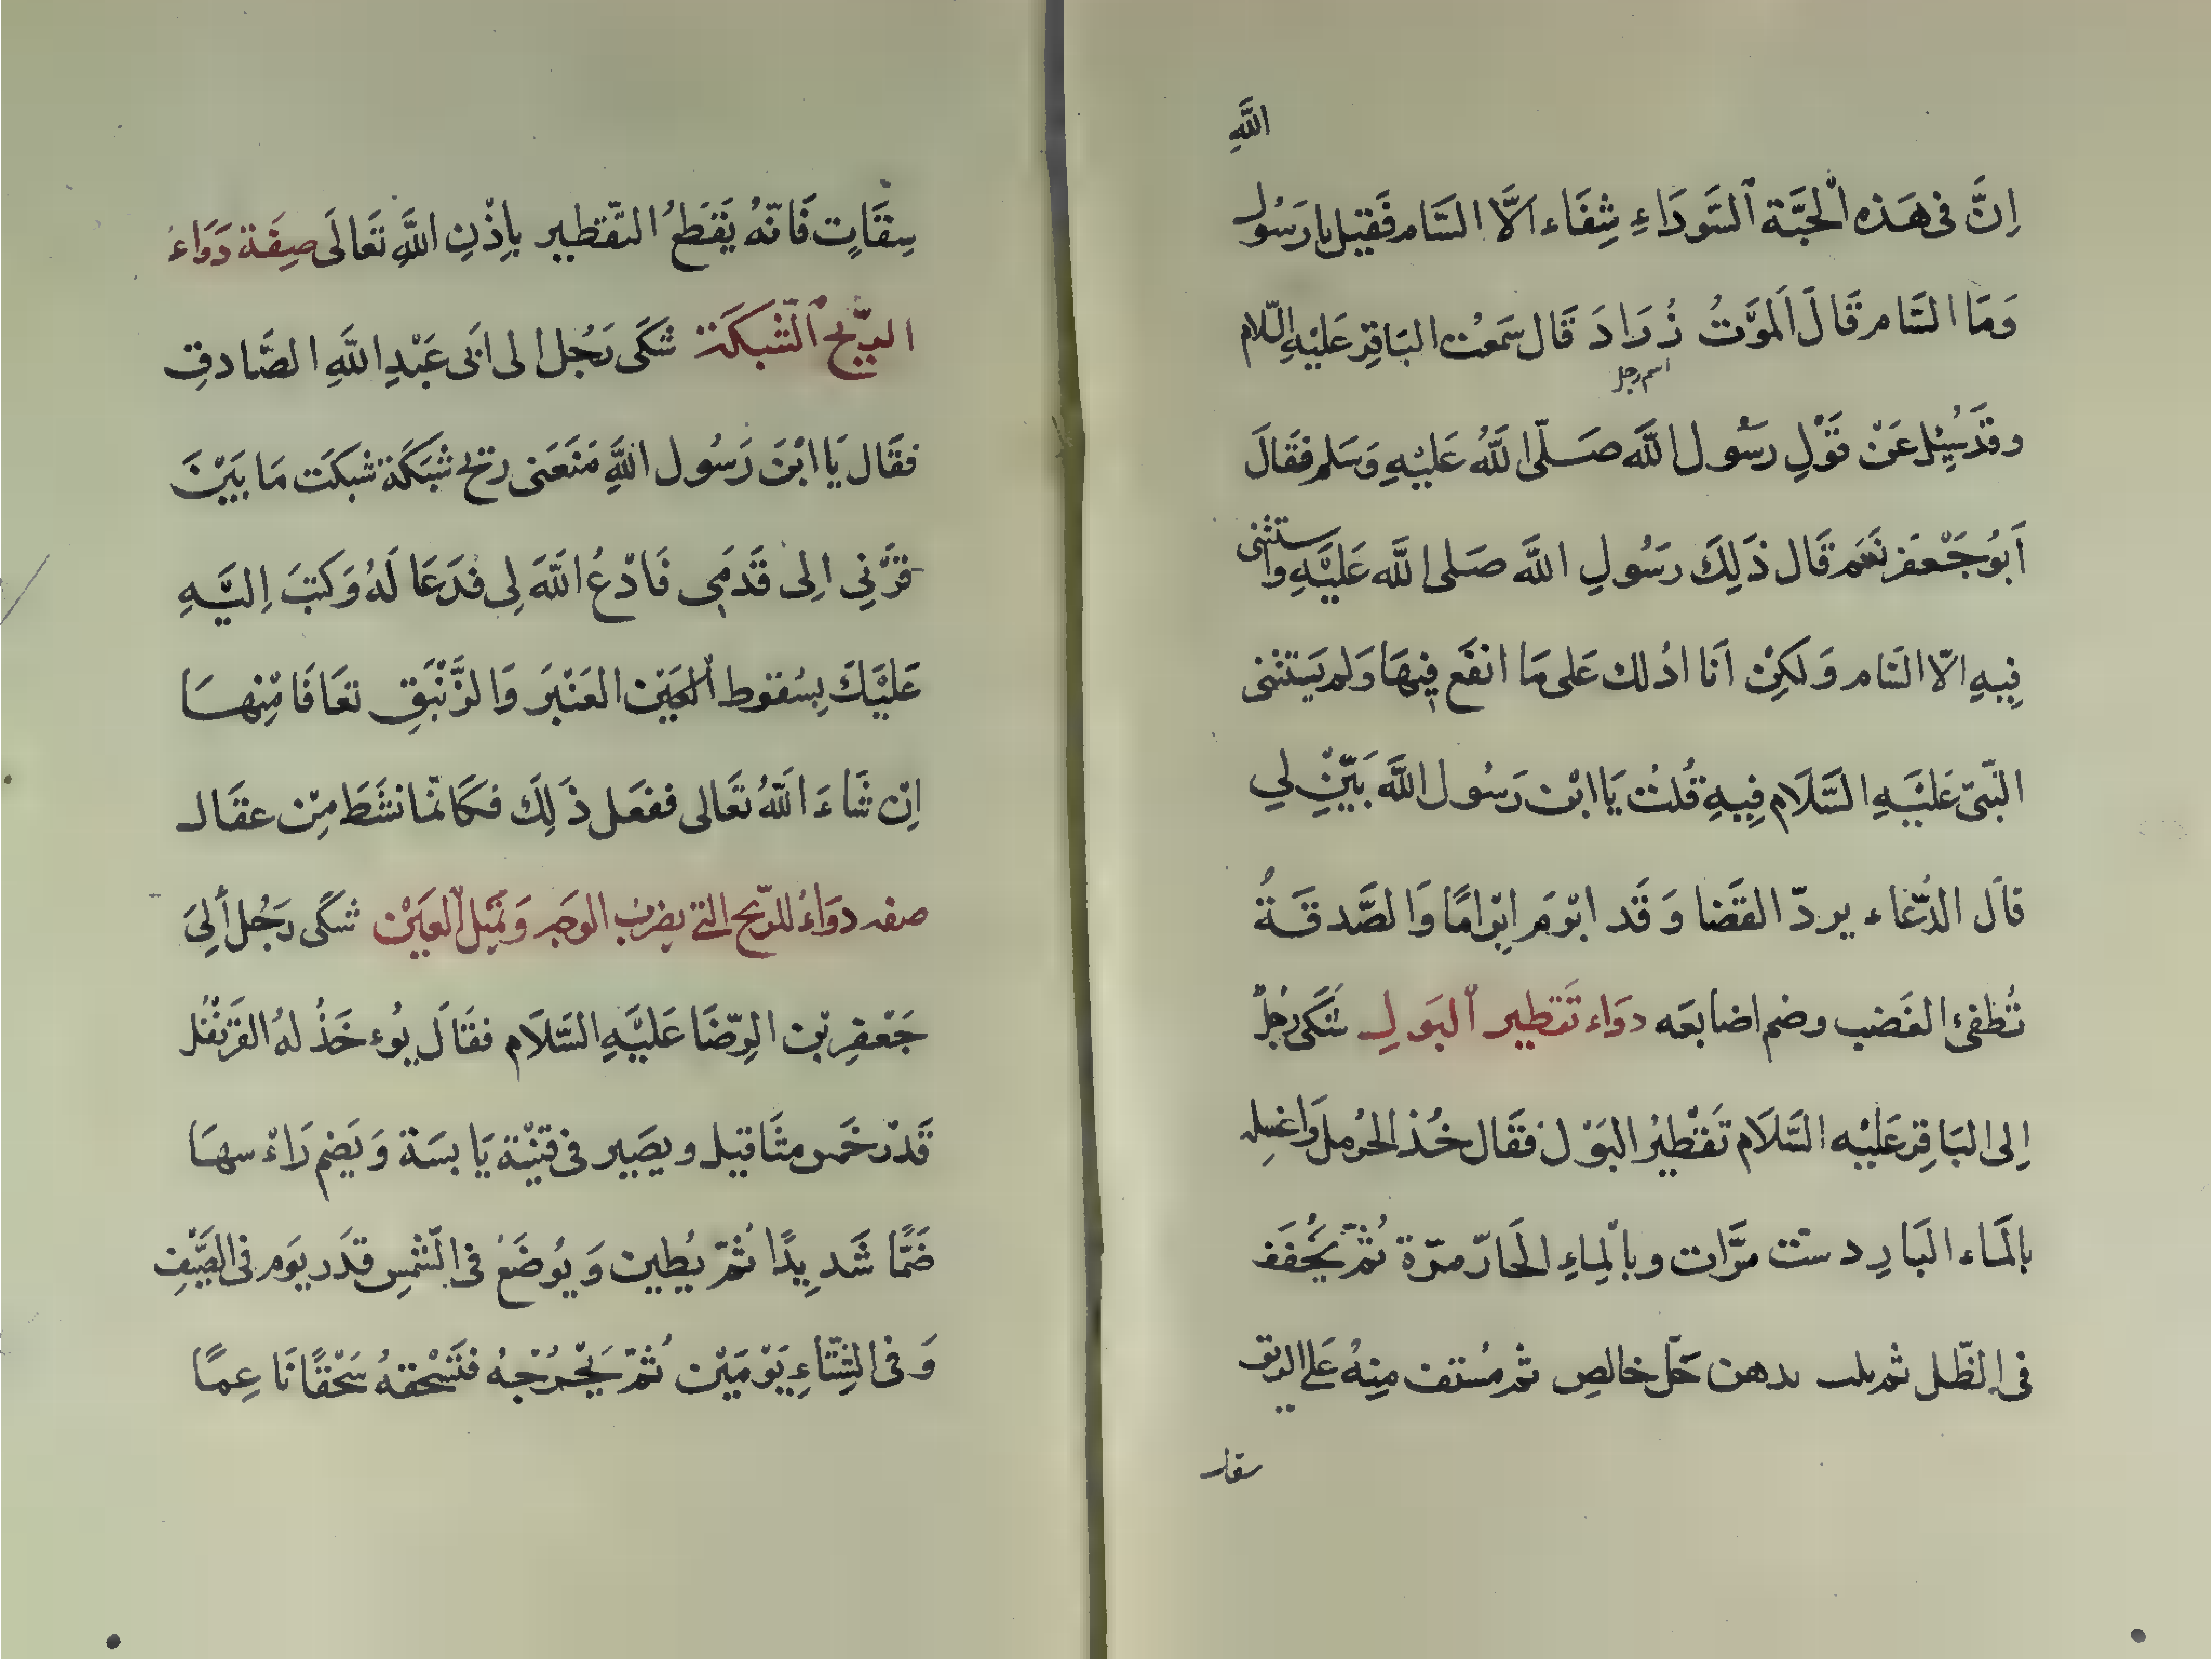 اللَّهِ
اِنَّ فى هَذه الْحَبَّة السَّودَاءِ شِفَاء اَلَّا السَّام فَقيل يا رَسُول
وَمَا السَّام قَالَ اَلمَوَّتُ زُرَادَ قَال سَمعْت البَاقِر عَليْهِ السّلام
اسم رجل
وقَدسُيِل عَنْ قَوْلِ رسُول اللَّه صَلّى اللَّهُ عَليْهِ وَسَلم فقَالَ
اَبُوجَعْفر نَعَم قَال ذَلِكَ رسُولِ اللَّه صَلى اللَّه عَليَّهِ واستثنى
فِيهِ الاّ السَام وَلكِنْ اَنَا ادُلك عَلى مَا انفَع فِيهَا وَلم يَستثنى
النَّبىّ عَليَّهِ السَّلَام فِيهِ قُلتُ يَا ابْن رَسُول اللَّه بَيِّنْ لي
قاَل الدُّعَاء يردّ القَضا وَقَد ابْومَ اِبْوامًا وَالصَّدقَةُ
تُطفىُ الغَضب وضم اضابعَه دوَاء تَقطِير البَولِ شَكَى رَجُلٌ
اِلى البَاقِر عَليْه السَّلَام تَقْطِيرُ البَوَل فقَال خُذ الحَرمل وَاغسِله
بالمَاء البَارِد ستّ مرَّات وبالمِاءِ الحَارّ مرّة ثُمّ يجُفَفَ
فى الظّل ثم يلت بدهن حَلّ خالصِ ثم مُستف مِنِهُ عَلى الريق
سقات
سِقَاتٍ فَانّهُ يَقطَعُ التّقطير بِاِذْنِ اللَّهِ تَعَالَى صِفَة دَوَاءُ
الرِّيح الشَّبكَة شَكَى رَجُل الى اَبى عَبْدِ اللَّهِ الصَّادقِ
فقَال يَا ابْنَ رَسُول اللَّهِ مَنَعَنى ريح شبَكَة شبكَت مَا بَيْنَ
قرَّنِي اِلى قَدمَى فَادْعُ اللَّهَ لِى فدَعَا لَهُ وَكتَبَ اِليَّهِ
عَليَّكَ بِسُقوط العَيْن العَنْبرَ وَالزَّنْبَقِ تعَافَا مِّنِهسَا
اِنْ شَاءَ اللَّهُ تَعَالى ففعَل ذَلِكَ فكَانّمَا نشَطَ مِنْ عقَال
صفه دوَاءُ للرّيح التى يضرب الوَجه وَتميَل العَيْن شكَى رَجُل أِلىَ
جَعْفرِبْن الرِّضَا عَليَّهِ السَّلاَم فقَالَ يُوء خَذُ لهُ القَرنْفُل
قَدْر خمَس مثَاقيل ويصَير فى قنيْنة يَابسَة وَيَضم رَاءْسهَا
ضَمًّا شَديِدًا ثُمّ يُطين وَيُوضَعُ فى الشَّمْسِ قدَر يوَم فى الصَّيْفِ
وَفى الشِتّاءِ يَوْمَيْن ثُمّ يَخْرُجْهُ فتَسْحقهُ سَحْقًانَا عِمًا